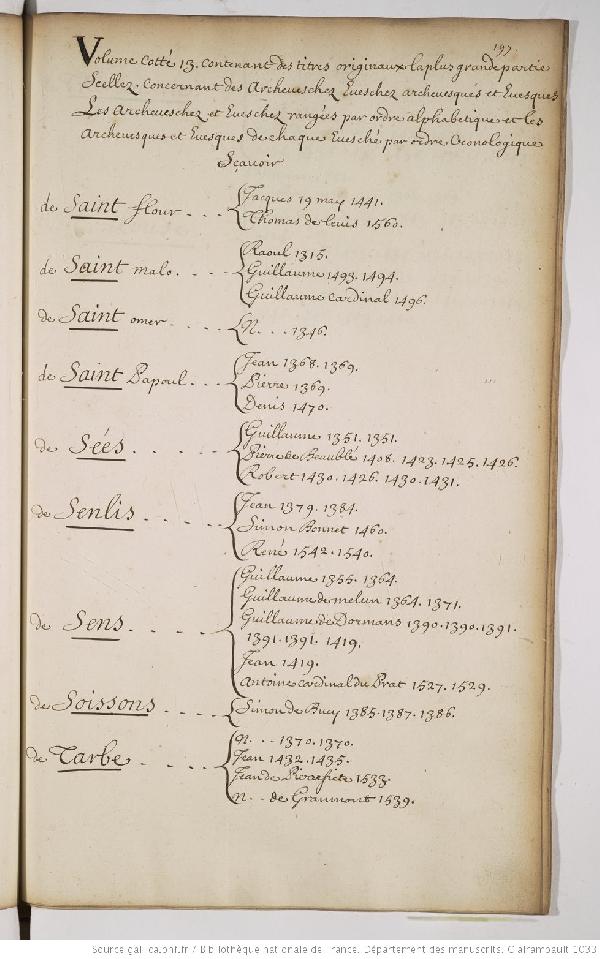 197
Volume Cotté 13. contenant des titres originaux la plus grande partie
Scellez, concernant des Archeveschez Eveschez archevesques et Evesques
Les Archeveschez et Eveschez rangées par ordre alphabetique et les
Archevesques et Evesques de chaque Evesché par ordre Cronologique
Sçavoir
de Saint flour . . . Jacques 19 may 1441.
Thomas de 1560.
de Saint malo . . . . Raoul 1315.
Guillaume 1493. 1494.
Guillaume Cardinal 1496.
de Saint omer . . . . N. . . . 1346.
de Saint Papoul . . . Jean 1368. 1369.
Pierre 1369.
Denis 1470.
de Sées . . . . Guillaume 1351. 1351.
Pierre de 1408. 1423. 1425. 1426.
Robert 1430. 1426. 1430. 1431.
de Senlis . . . . Jean 1379. 1384.
Simon Bonnet 1460.
René 1542. 1540.
de Sens . . . . Guillaume 1355. 1364.
Guillaume de melun 1364. 1371.
Guillaume de Dormans 1390. 1390. 1391.
1391. 1391. 1419.
Jean 1419.
Antoine cardinal du Prat 1527. 1529.
de Soissons . . . . Simon de Bucy 1385. 1387. 1386.
de Tarbe . . . . N. . . 1370. 1370.
Jean 1432. 1435.
Jean de 1533.
N. . . de Grammont 1539.
Source gallica.bnf.fr / Bibliothèque nationale de France. Département des manuscrits. Clairambault 1033